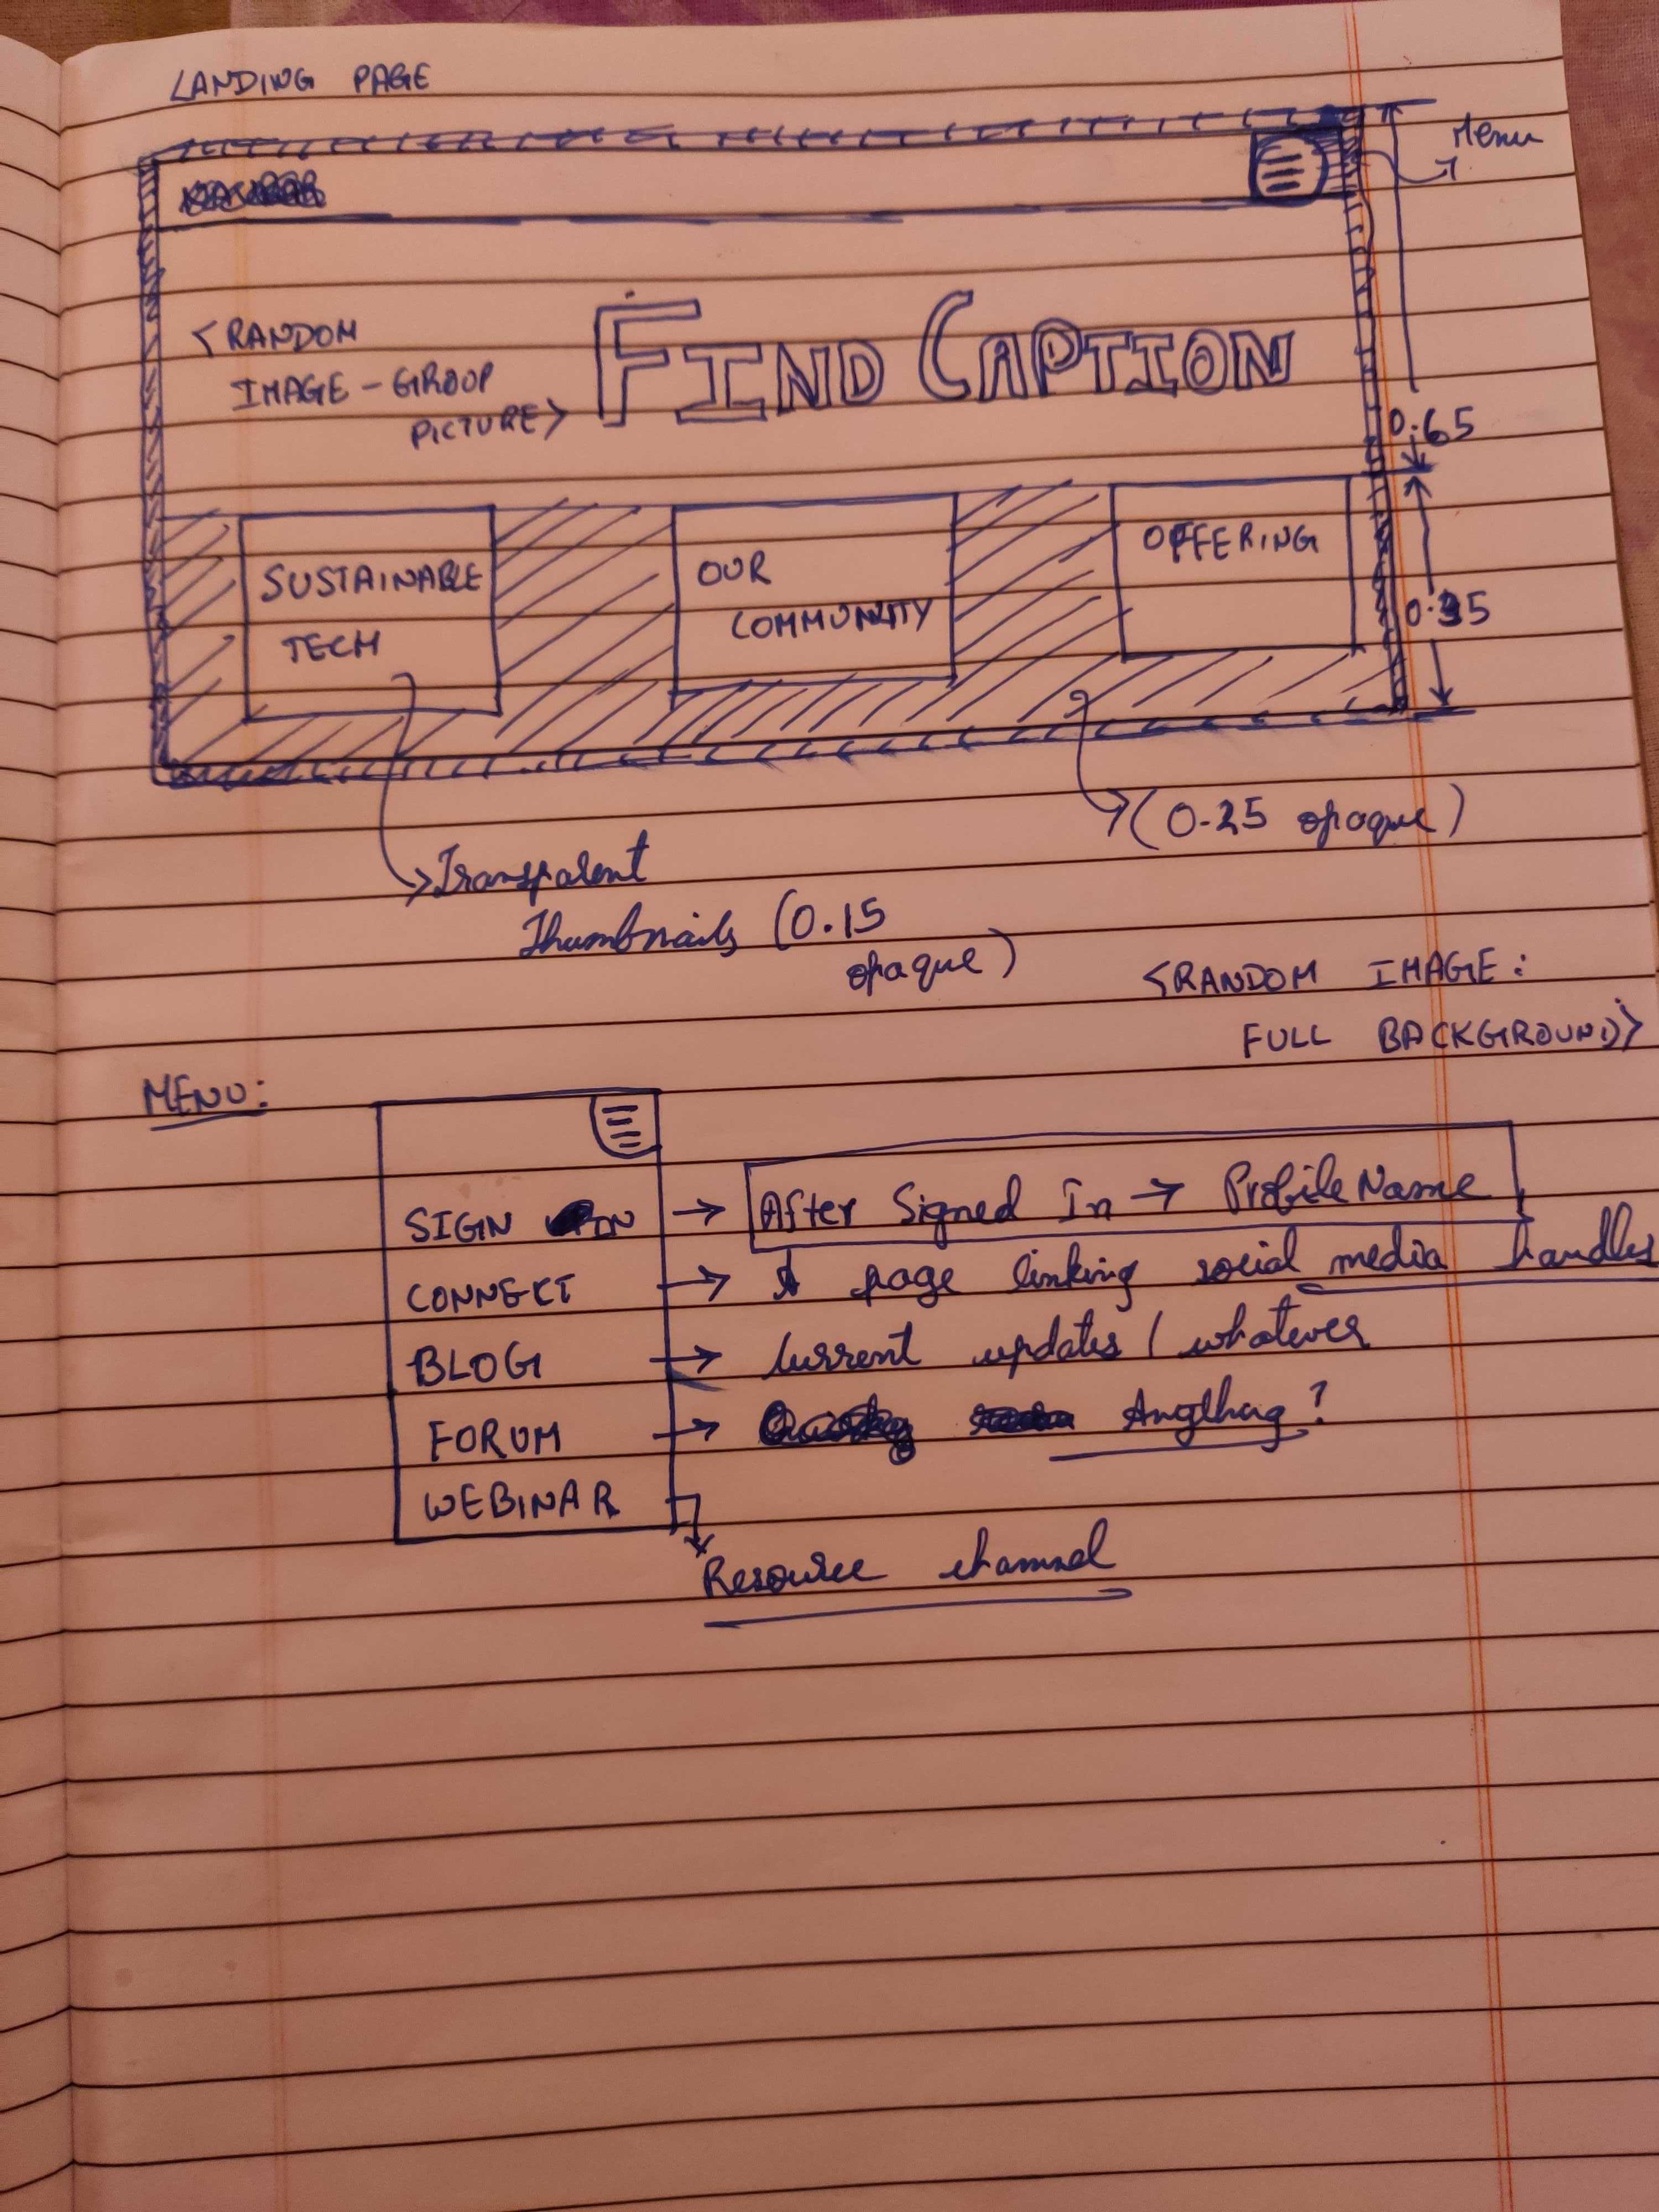 LANDING PAGE
Menu
<RANDOM
IMAGE - GROUP
PICTURE>
FIND CAPTION
0.65
SUSTAINABLE
TECH
OUR
COMMUNITY
OFFERING
0.35
(0.25 opaque)
Transparent
Thumbnails (0.15
opaque)
<RANDOM IMAGE:
FULL BACKGROUND>
MENU:
SIGN IN → After Signed In → Profile Name
CONNECT → A page linking social media handles
BLOG → Current updates / whatever
FORUM → Anything?
WEBINAR
Resource channel